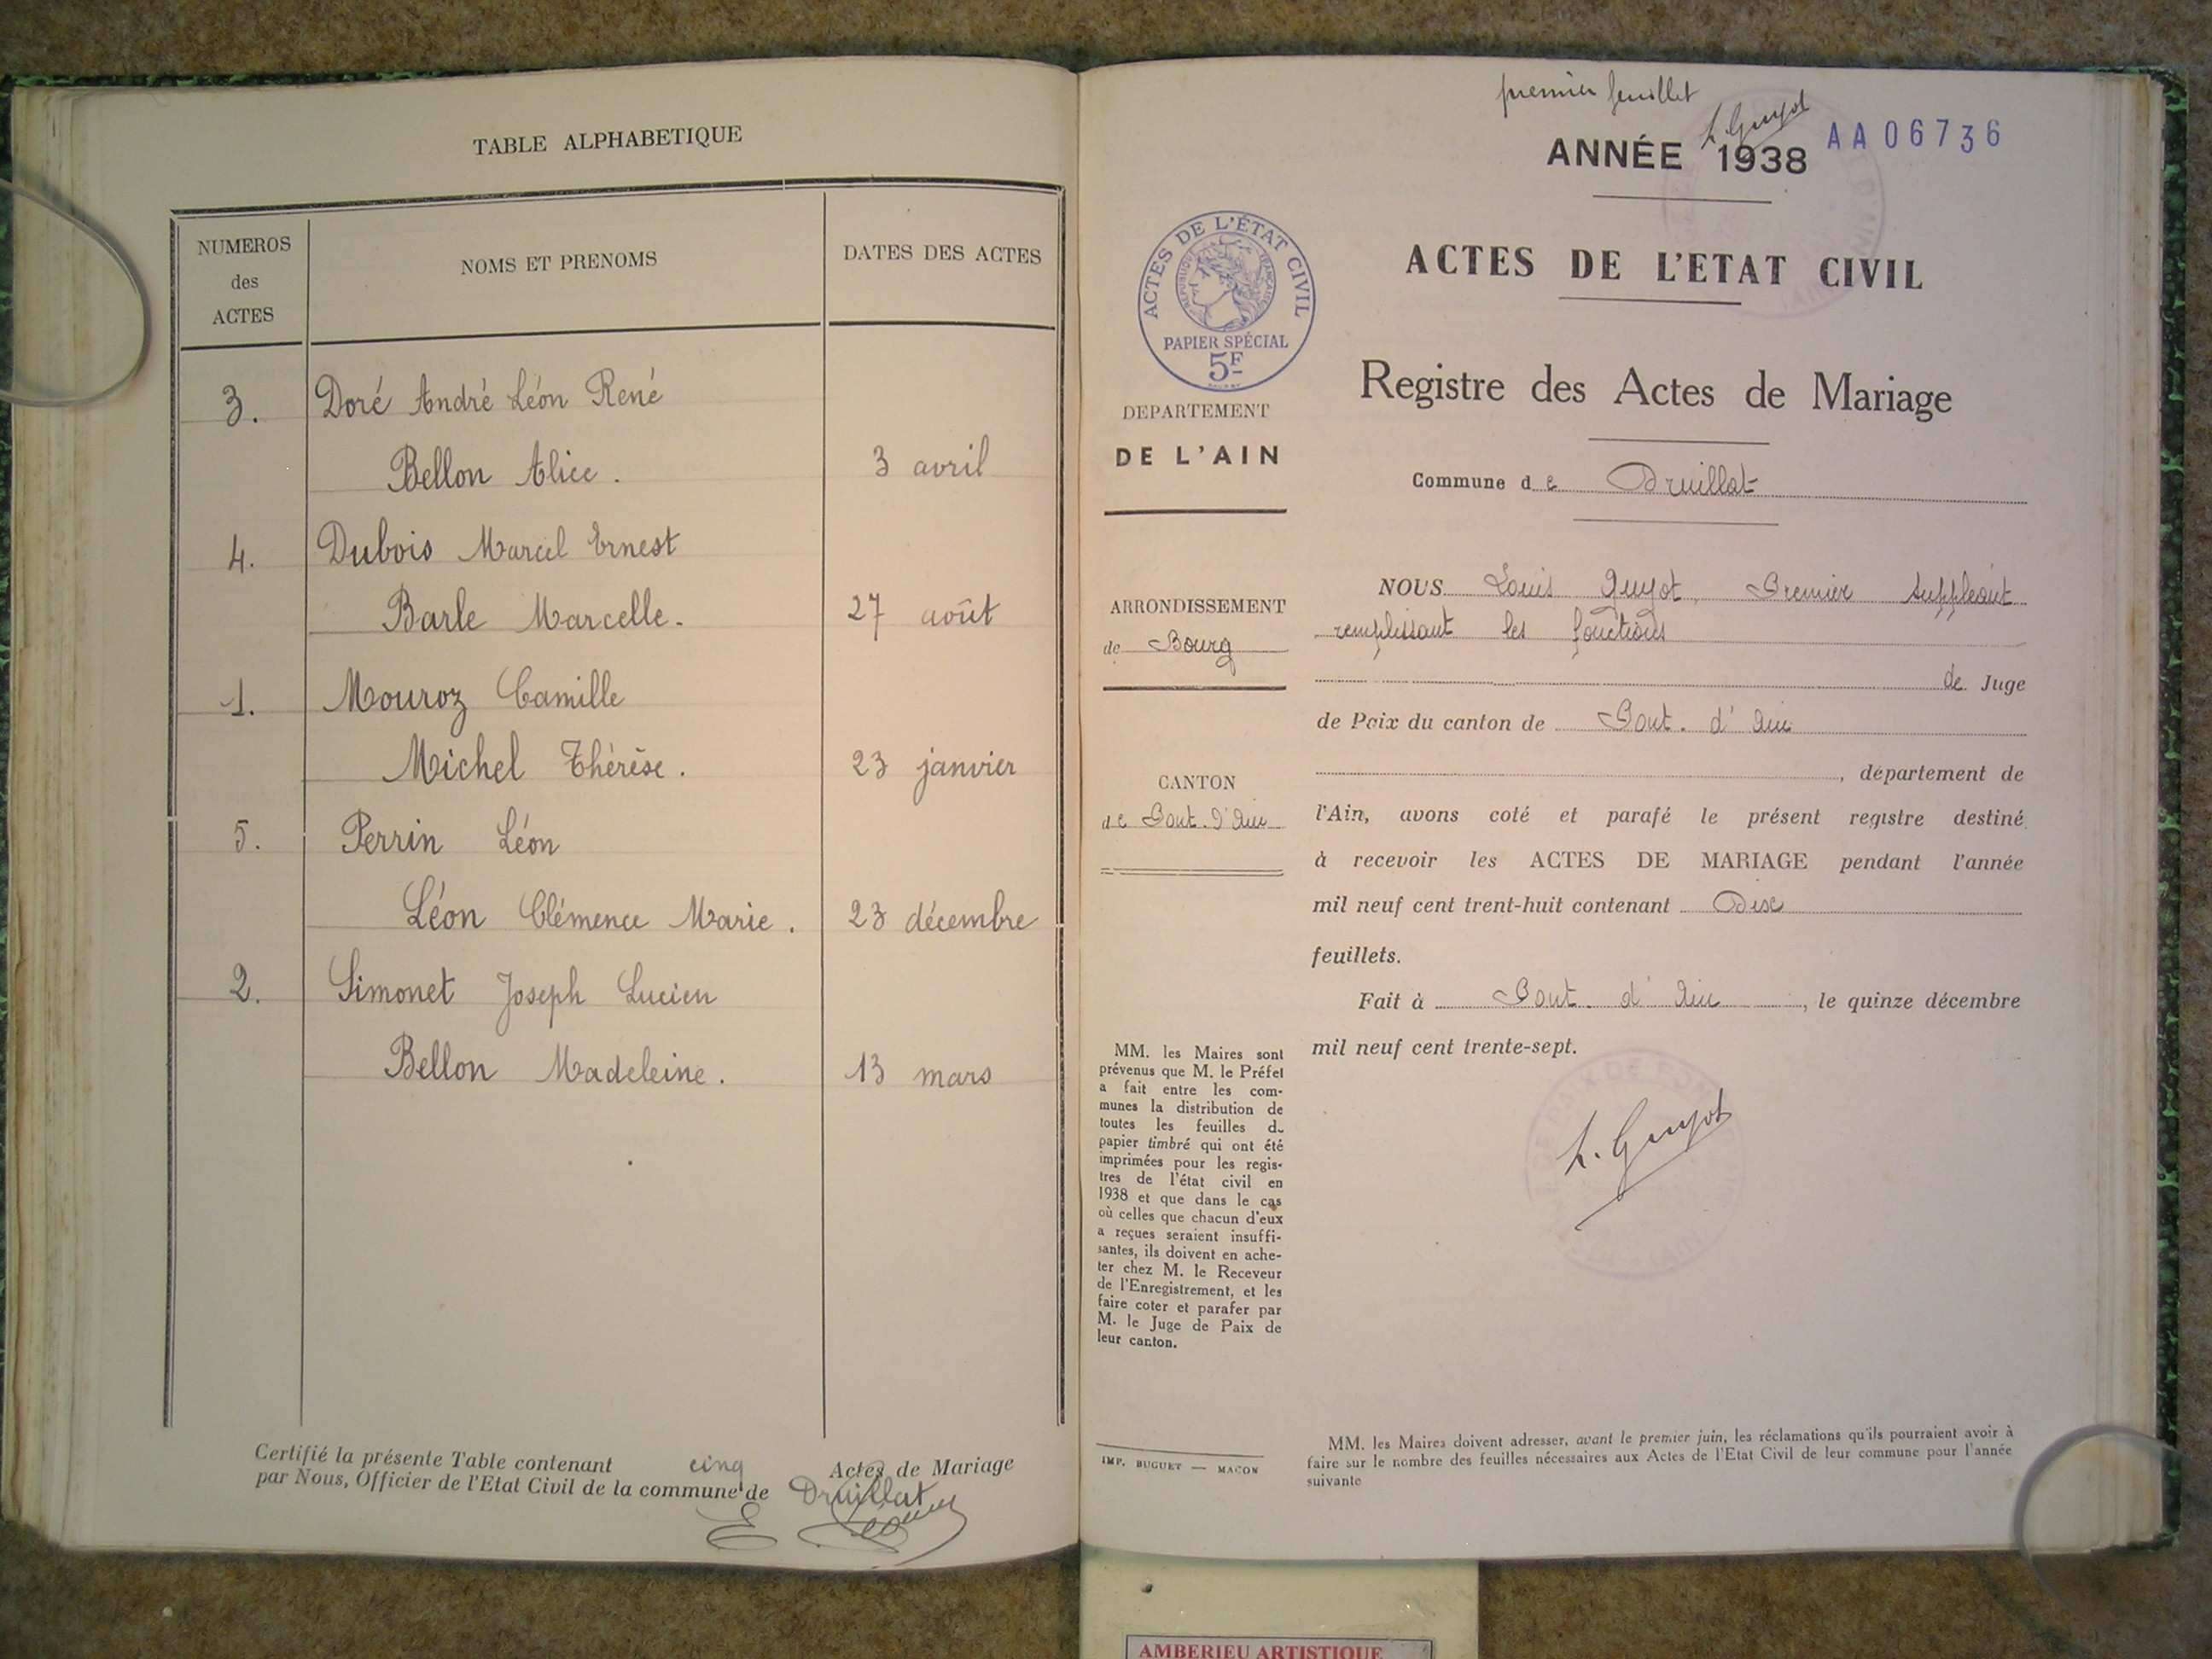 TABLE ALPHABETIQUE
NUMEROS des ACTES
NOMS ET PRENOMS
DATES DES ACTES
3. Doré André Léon René
Bellon Alice. 3 avril
4. Dubois Marcel Ernest
Barle Marcelle. 27 août
1. Mouroz Camille
Michel Thérèse. 23 janvier
5. Perrin Léon
Léon Clémence Marie. 23 décembre
2. Simonet Joseph Lucien
Bellon Madeleine. 13 mars
Certifié la présente Table contenant cinq Actes de Mariage
par Nous, Officier de l'Etat Civil de la commune de Druillat
premier feuillet
L. Guyot
ANNÉE 1938
AA06736
ACTES DE L'ETAT CIVIL
Registre des Actes de Mariage
Commune de Druillat
ACTES DE L'ÉTAT CIVIL
RÉPUBLIQUE FRANÇAISE
PAPIER SPÉCIAL
5F
DEPARTEMENT
DE L'AIN
ARRONDISSEMENT
de Bourg
CANTON
de Pont. d'Ain
MM. les Maires sont
prévenus que M. le Préfet
a fait entre les com-
munes la distribution de
toutes les feuilles de
papier timbré qui ont été
imprimées pour les regis-
tres de l'état civil en
1938 et que dans le cas
où celles que chacun d'eux
a reçues seraient insuffi-
santes, ils doivent en ache-
ter chez M. le Receveur
de l'Enregistrement, et les
faire coter et parafer par
M. le Juge de Paix de
leur canton.
IMP. BUGUET — MACON
NOUS Louis Guyot, Premier Suppléant
remplissant les fonctions
de Juge
de Paix du canton de Pont. d'Ain
, département de
l'Ain, avons coté et parafé le présent registre destiné
à recevoir les ACTES DE MARIAGE pendant l'année
mil neuf cent trent-huit contenant Dix
feuillets.
Fait à Pont. d'Ain, le quinze décembre
mil neuf cent trente-sept.
L. Guyot
MM. les Maires doivent adresser, avant le premier juin, les réclamations qu'ils pourraient avoir à
faire sur le nombre des feuilles nécessaires aux Actes de l'Etat Civil de leur commune pour l'année
suivante
AMBERIEU ARTISTIQUE